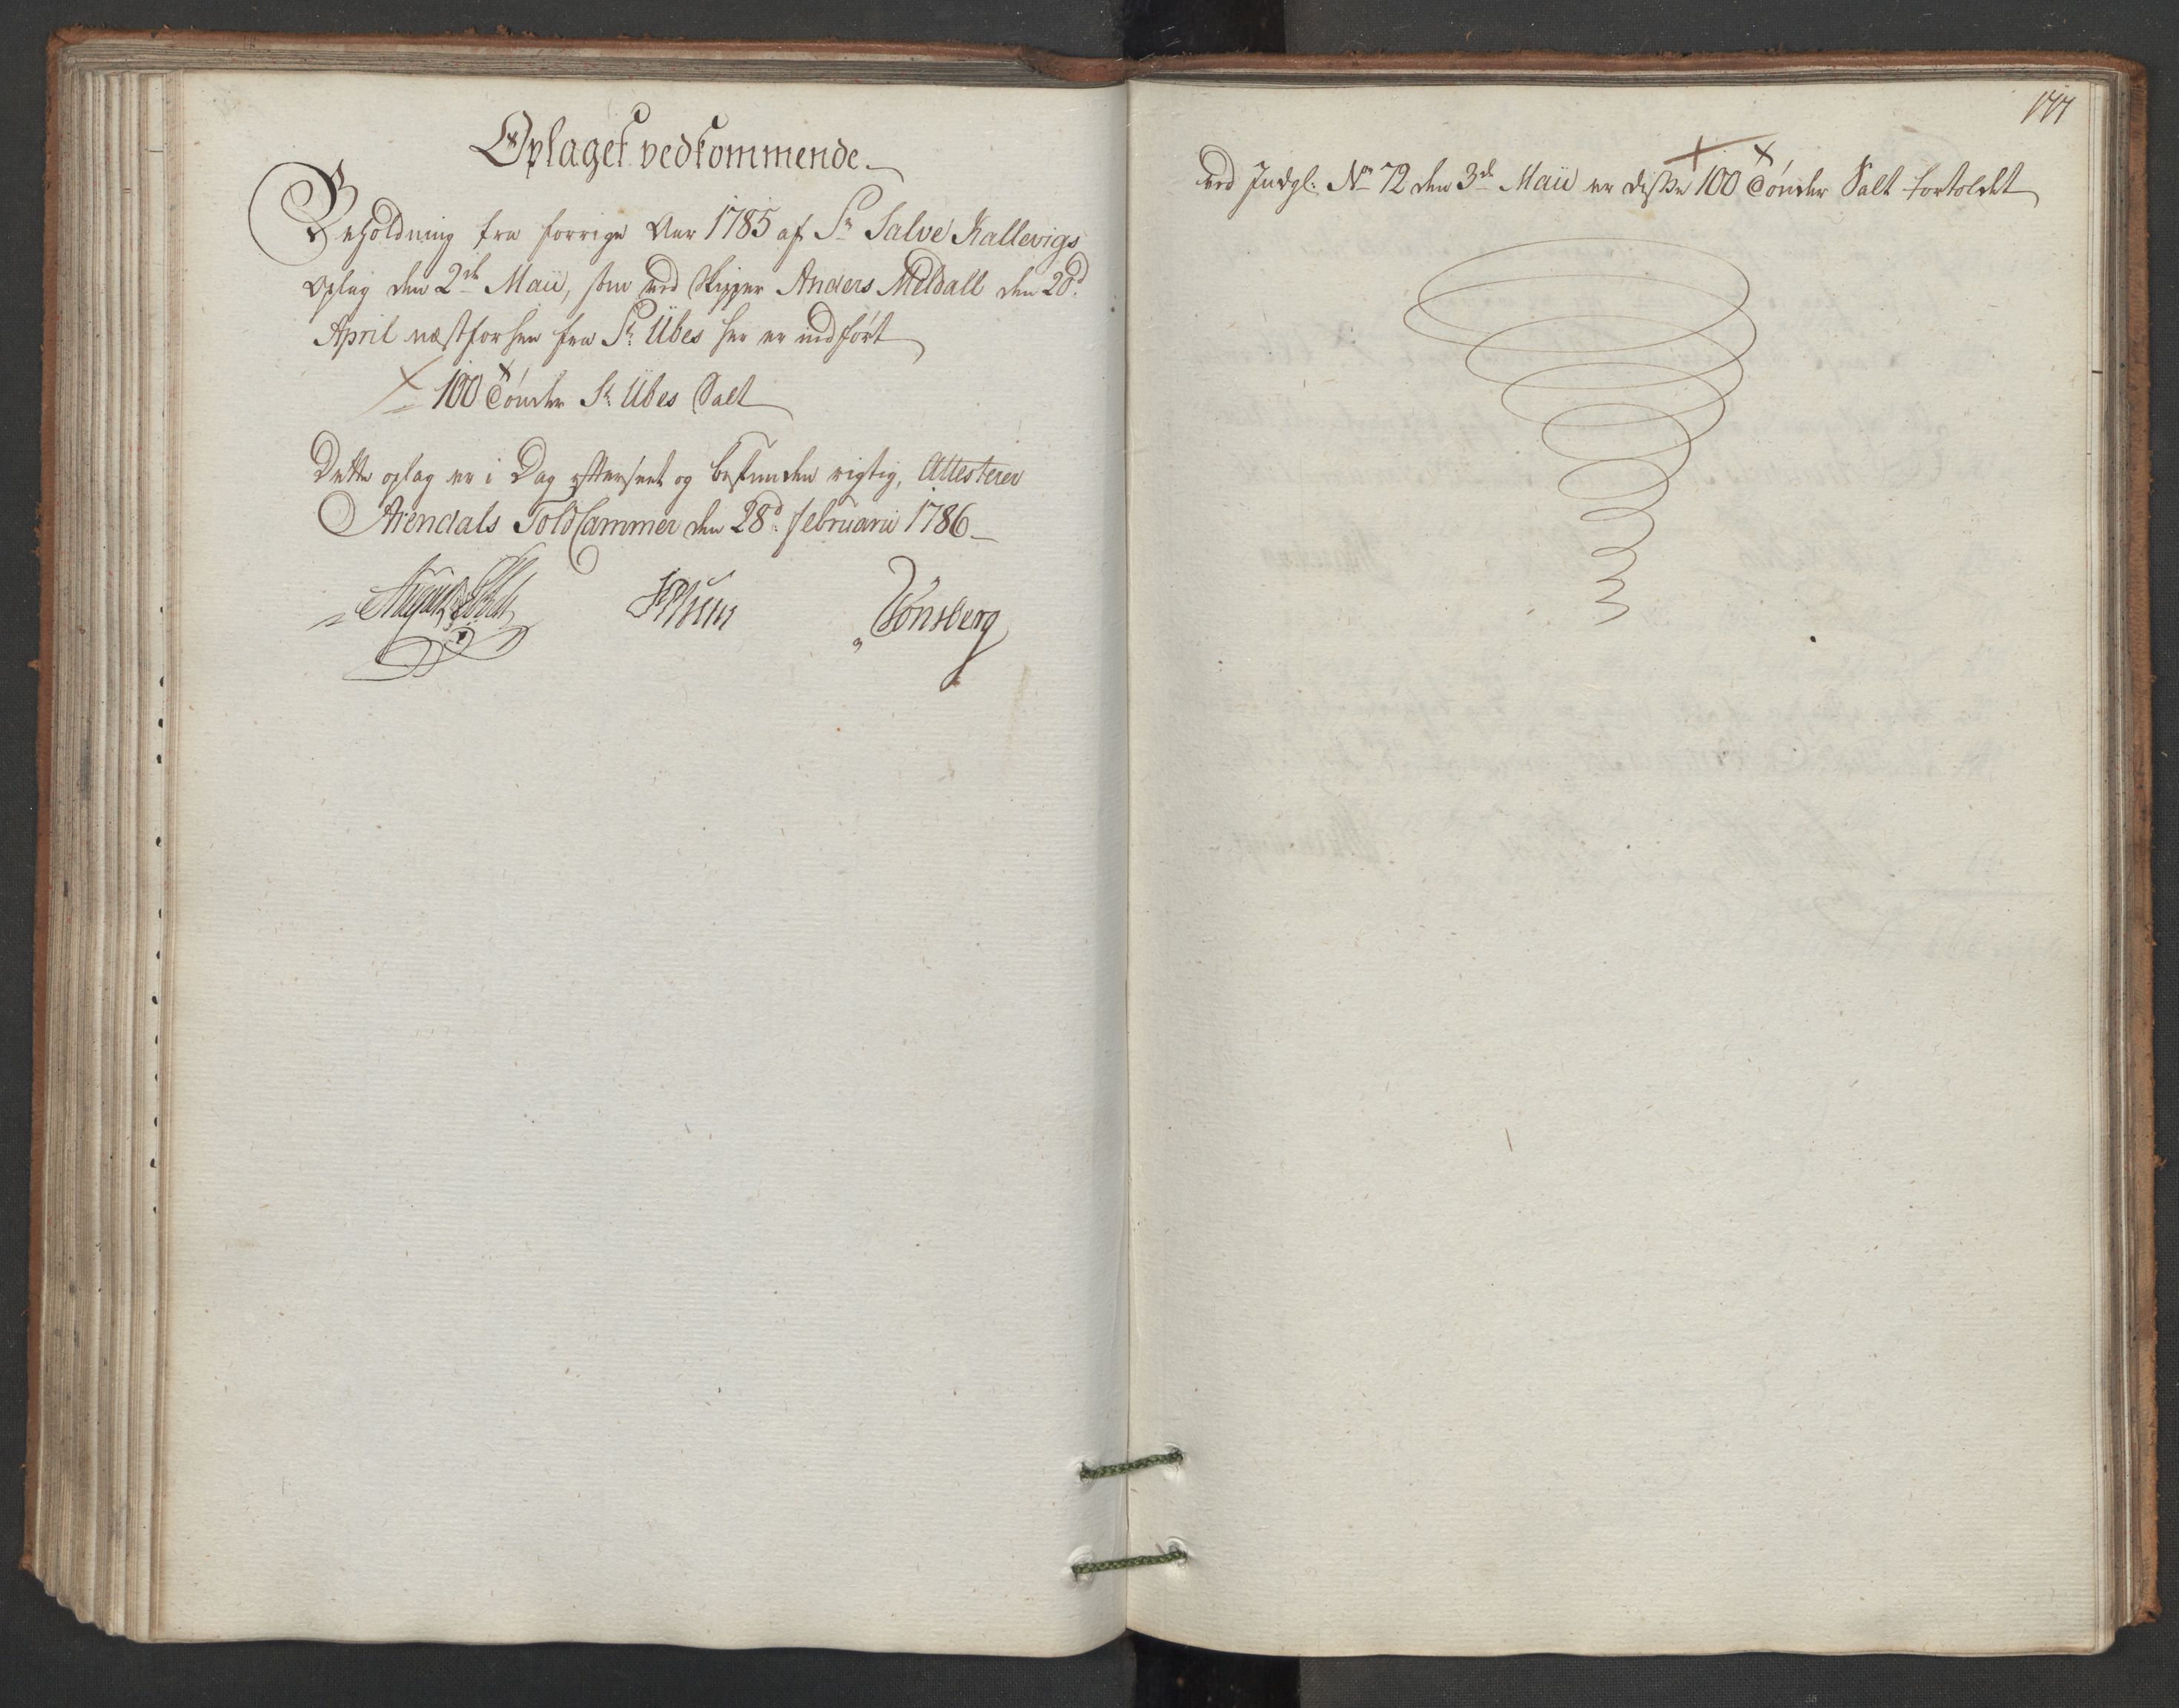 Oplaget vedkommende
Beholdning fra forrige Aar 1785 af Sr Salve Kallevigs
Oplag den 2de Maii, som ved Skipper Anders Meldall den 20d
April næstforhen fra St: Übes her er indført
100 Tønder St: Übes Salt
Dette oplag er i Dag efterseet og befunden rigtig, Attesterer
Arendals Told Cammer den 28d: Februarii 1786
Tønsberg
177
ved Indgl: No 72 den 3de Maii er disse 100 Tønder Salt fortoldet